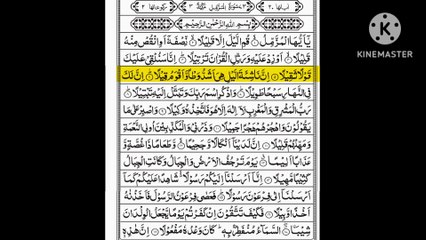 بِسْمِ اللهِ الرَّحْمٰنِ الرَّحِيْمِ
KINEMASTER
يٰۤاَيُّهَا الْمُزَّمِّلُ ۙ قُمِ الَّيْلَ اِلَّا قَلِيْلًا ۙ نِّصْفَهٗۤ اَوِ انْقُصْ مِنْهُ
قَلِيْلًا ۙ اَوْ زِدْ عَلَيْهِ وَرَتِّلِ الْقُرْاٰنَ تَرْتِيْلًا ۭ اِنَّا سَنُلْقِيْ عَلَيْكَ
قَوْلًا ثَقِيْلًا اِنَّ نَاشِئَةَ الَّيْلِ هِيَ اَشَدُّ وَطْاً وَّاَقْوَمُ قِيْلًا ۭ اِنَّ لَكَ
فِي النَّهَارِ سَبْحًا طَوِيْلًا ۭ وَاذْكُرِ اسْمَ رَبِّكَ وَتَبَتَّلْ اِلَيْهِ تَبْتِيْلًا ۭ
رَبُّ الْمَشْرِقِ وَالْمَغْرِبِ لَاۤ اِلٰهَ اِلَّا هُوَ فَاتَّخِذْهُ وَكِيْلًا وَاصْبِرْ عَلٰى مَا
يَقُوْلُوْنَ وَاهْجُرْهُمْ هَجْرًا جَمِيْلًا وَذَرْنِيْ وَالْمُكَذِّبِيْنَ اُولِي النَّعْمَةِ
وَمَهِّلْهُمْ قَلِيْلًا اِنَّ لَدَيْنَاۤ اَنْكَالًا وَّجَحِيْمًا ۙ وَّطَعَامًا ذَا غُصَّةٍ وَّ
عَذَابًا اَلِيْمًا يَوْمَ تَرْجُفُ الْاَرْضُ وَالْجِبَالُ وَكَانَتِ الْجِبَالُ
كَثِيْبًا مَّهِيْلًا اِنَّاۤ اَرْسَلْنَاۤ اِلَيْكُمْ رَسُوْلًا ۙ شَاهِدًا عَلَيْكُمْ كَمَاۤ
اَرْسَلْنَاۤ اِلٰى فِرْعَوْنَ رَسُوْلًا ۭ فَعَصٰى فِرْعَوْنُ الرَّسُوْلَ فَاَخَذْنٰهُ
اَخْذًا وَّبِيْلًا فَكَيْفَ تَتَّقُوْنَ اِنْ كَفَرْتُمْ يَوْمًا يَّجْعَلُ الْوِلْدَانَ
شِيْبًا السَّمَآءُ مُنْفَطِرٌۢ بِهٖ كَانَ وَعْدُهٗ مَفْعُوْلًا اِنَّ هٰذِهٖ